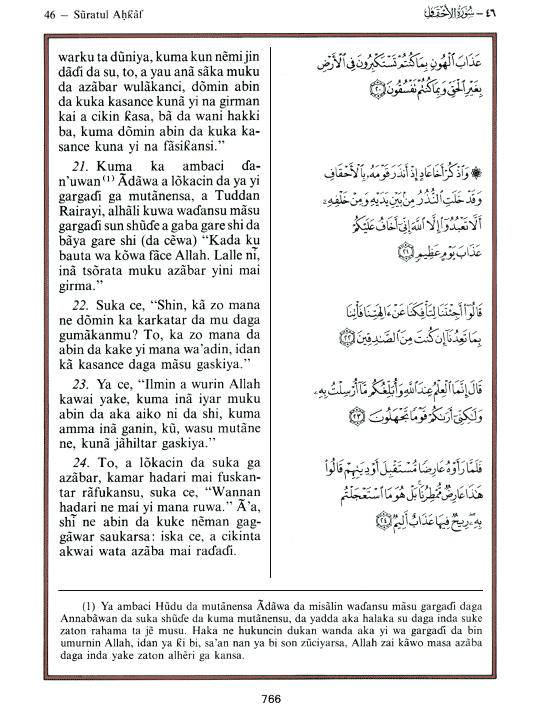 46 – Sūratul Aḥƙāf
٤٦ – سُورَةُ الأَحْقَافِ
warku ta dũniya, kuma kun nẽmi jin
dãɗi da su, to, a yau anã sãka muku
da azãbar wulãkanci, dõmin abin
da kuka kasance kunã yi na girman
kai a cikin ƙasa, bã da wani hakki
ba, kuma dõmin abin da kuka ka-
sance kuna yi na fãsiƙansi.”
21. Kuma ka ambaci ɗa-
n’uwan⁽¹⁾ Ãdãwa a lõkacin da ya yi
gargaɗi ga mutãnensa, a Tuddan
Rairayi, alhãli kuwa waɗansu mãsu
gargaɗi sun shũɗe a gaba gare shi da
bãya gare shi (da cẽwa) “Kada ku
bauta wa kõwa fãce Allah. Lalle nĩ,
inã tsõrata muku azãbar yini mai
girma.”
22. Suka ce, “Shin, kã zo mana
ne dõmin ka karkatar da mu daga
gumãkanmu? To, ka zo mana da
abin da kake yi mana wa’adin, idan
kã kasance daga mãsu gaskiya.”
23. Ya ce, “Ilmin a wurin Allah
kawai yake, kuma inã iyar muku
abin da aka aiko ni da shi, kuma
amma inã ganin, kũ, wasu mutãne
ne, kunã jãhiltar gaskiya.”
24. To, a lõkacin da suka ga
azãbar, kamar hadari mai fuskan-
tar rãfukansu, suka ce, “Wannan
hadari ne mai yi mana ruwa.” Ã’a,
shĩ ne abin da kuke nẽman gag-
gãwar saukarsa: iska ce, a cikinta
akwai wata azãba mai raɗaɗi.
عَذَابَ ٱلْهُونِ بِمَا كُنتُمْ تَسْتَكْبِرُونَ فِى ٱلْأَرْضِ
بِغَيْرِ ٱلْحَقِّ وَبِمَا كُنتُمْ تَفْسُقُونَ ﴿٢٠﴾
۞ وَٱذْكُرْ أَخَا عَادٍ إِذْ أَنذَرَ قَوْمَهُۥ بِٱلْأَحْقَافِ
وَقَدْ خَلَتِ ٱلنُّذُرُ مِنۢ بَيْنِ يَدَيْهِ وَمِنْ خَلْفِهِۦٓ
أَلَّا تَعْبُدُوٓا۟ إِلَّا ٱللَّهَ إِنِّىٓ أَخَافُ عَلَيْكُمْ
عَذَابَ يَوْمٍ عَظِيمٍ ﴿٢١﴾
قَالُوٓا۟ أَجِئْتَنَا لِتَأْفِكَنَا عَنْ ءَالِهَتِنَا فَأْتِنَا
بِمَا تَعِدُنَآ إِن كُنتَ مِنَ ٱلصَّٰدِقِينَ ﴿٢٢﴾
قَالَ إِنَّمَا ٱلْعِلْمُ عِندَ ٱللَّهِ وَأُبَلِّغُكُم مَّآ أُرْسِلْتُ بِهِۦ
وَلَٰكِنِّىٓ أَرَىٰكُمْ قَوْمًا تَجْهَلُونَ ﴿٢٣﴾
فَلَمَّا رَأَوْهُ عَارِضًا مُّسْتَقْبِلَ أَوْدِيَتِهِمْ قَالُوا۟
هَٰذَا عَارِضٌ مُّمْطِرُنَا بَلْ هُوَ مَا ٱسْتَعْجَلْتُم
بِهِۦ رِيحٌ فِيهَا عَذَابٌ أَلِيمٌ ﴿٢٤﴾
(1) Ya ambaci Hũdu da mutãnensa Ãdãwa da misãlin waɗansu mãsu gargaɗi daga
Annabãwan da suka shũɗe da kuma mutãnensu, da yadda aka halaka su daga inda suke
zaton rahama ta jẽ musu. Haka ne hukuncin dukan wanda aka yi wa gargaɗi da bin
umurnin Allah, idan ya ƙi bi, sa’an nan ya bi son zũciyarsa, Allah zai kãwo masa azãba
daga inda yake zaton alhẽri ga kansa.
766